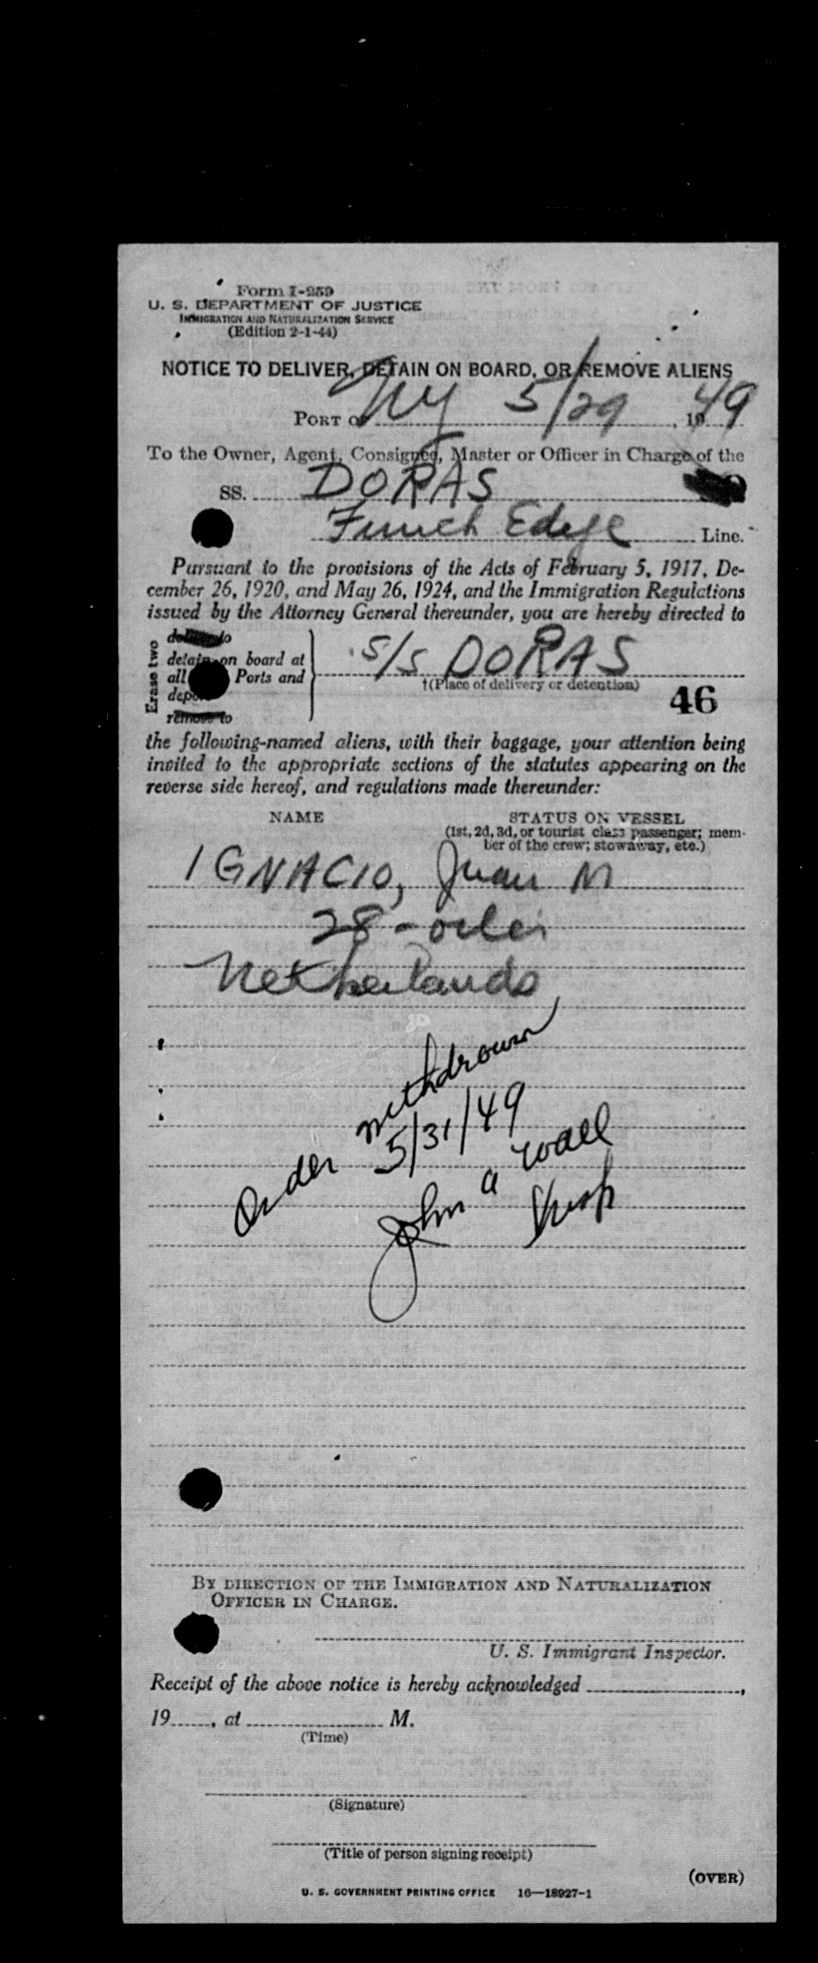 Form I-259
U. S. DEPARTMENT OF JUSTICE
IMMIGRATION AND NATURALIZATION SERVICE
(Edition 2-1-44)
NOTICE TO DELIVER, DETAIN ON BOARD, OR REMOVE ALIENS
PORT OF NY 5/29, 1949
To the Owner, Agent, Consignee, Master or Officer in Charge of the
SS. DORAS
Funch Edye Line.
Pursuant to the provisions of the Acts of February 5, 1917, De-
cember 26, 1920, and May 26, 1924, and the Immigration Regulations
issued by the Attorney General thereunder, you are hereby directed to
Erase two
detain on board at
all Ports and
remove to
S/S DORAS
†(Place of delivery or detention)
46
the following-named aliens, with their baggage, your attention being
invited to the appropriate sections of the statutes appearing on the
reverse side hereof, and regulations made thereunder:
NAME STATUS ON VESSEL
(1st, 2d, 3d, or tourist class passenger; mem-
ber of the crew; stowaway, etc.)
IGNACIO, Juan M
28 - oiler
Netherlands
Order withdrawn
5/31/49
John A Wall
Insp
BY DIRECTION OF THE IMMIGRATION AND NATURALIZATION
OFFICER IN CHARGE.
U. S. Immigrant Inspector.
Receipt of the above notice is hereby acknowledged ,
19 , at M.
(Time)
(Signature)
(Title of person signing receipt)
(OVER)
U. S. GOVERNMENT PRINTING OFFICE 16—18927-1